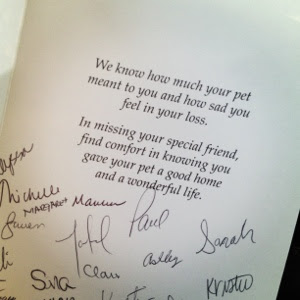 We know how much your pet
meant to you and how sad you
feel in your loss.
In missing your special friend,
find comfort in knowing you
gave your pet a good home
and a wonderful life.
Michelle
MARGARET
Paul
Ashley Sarah
Kristen